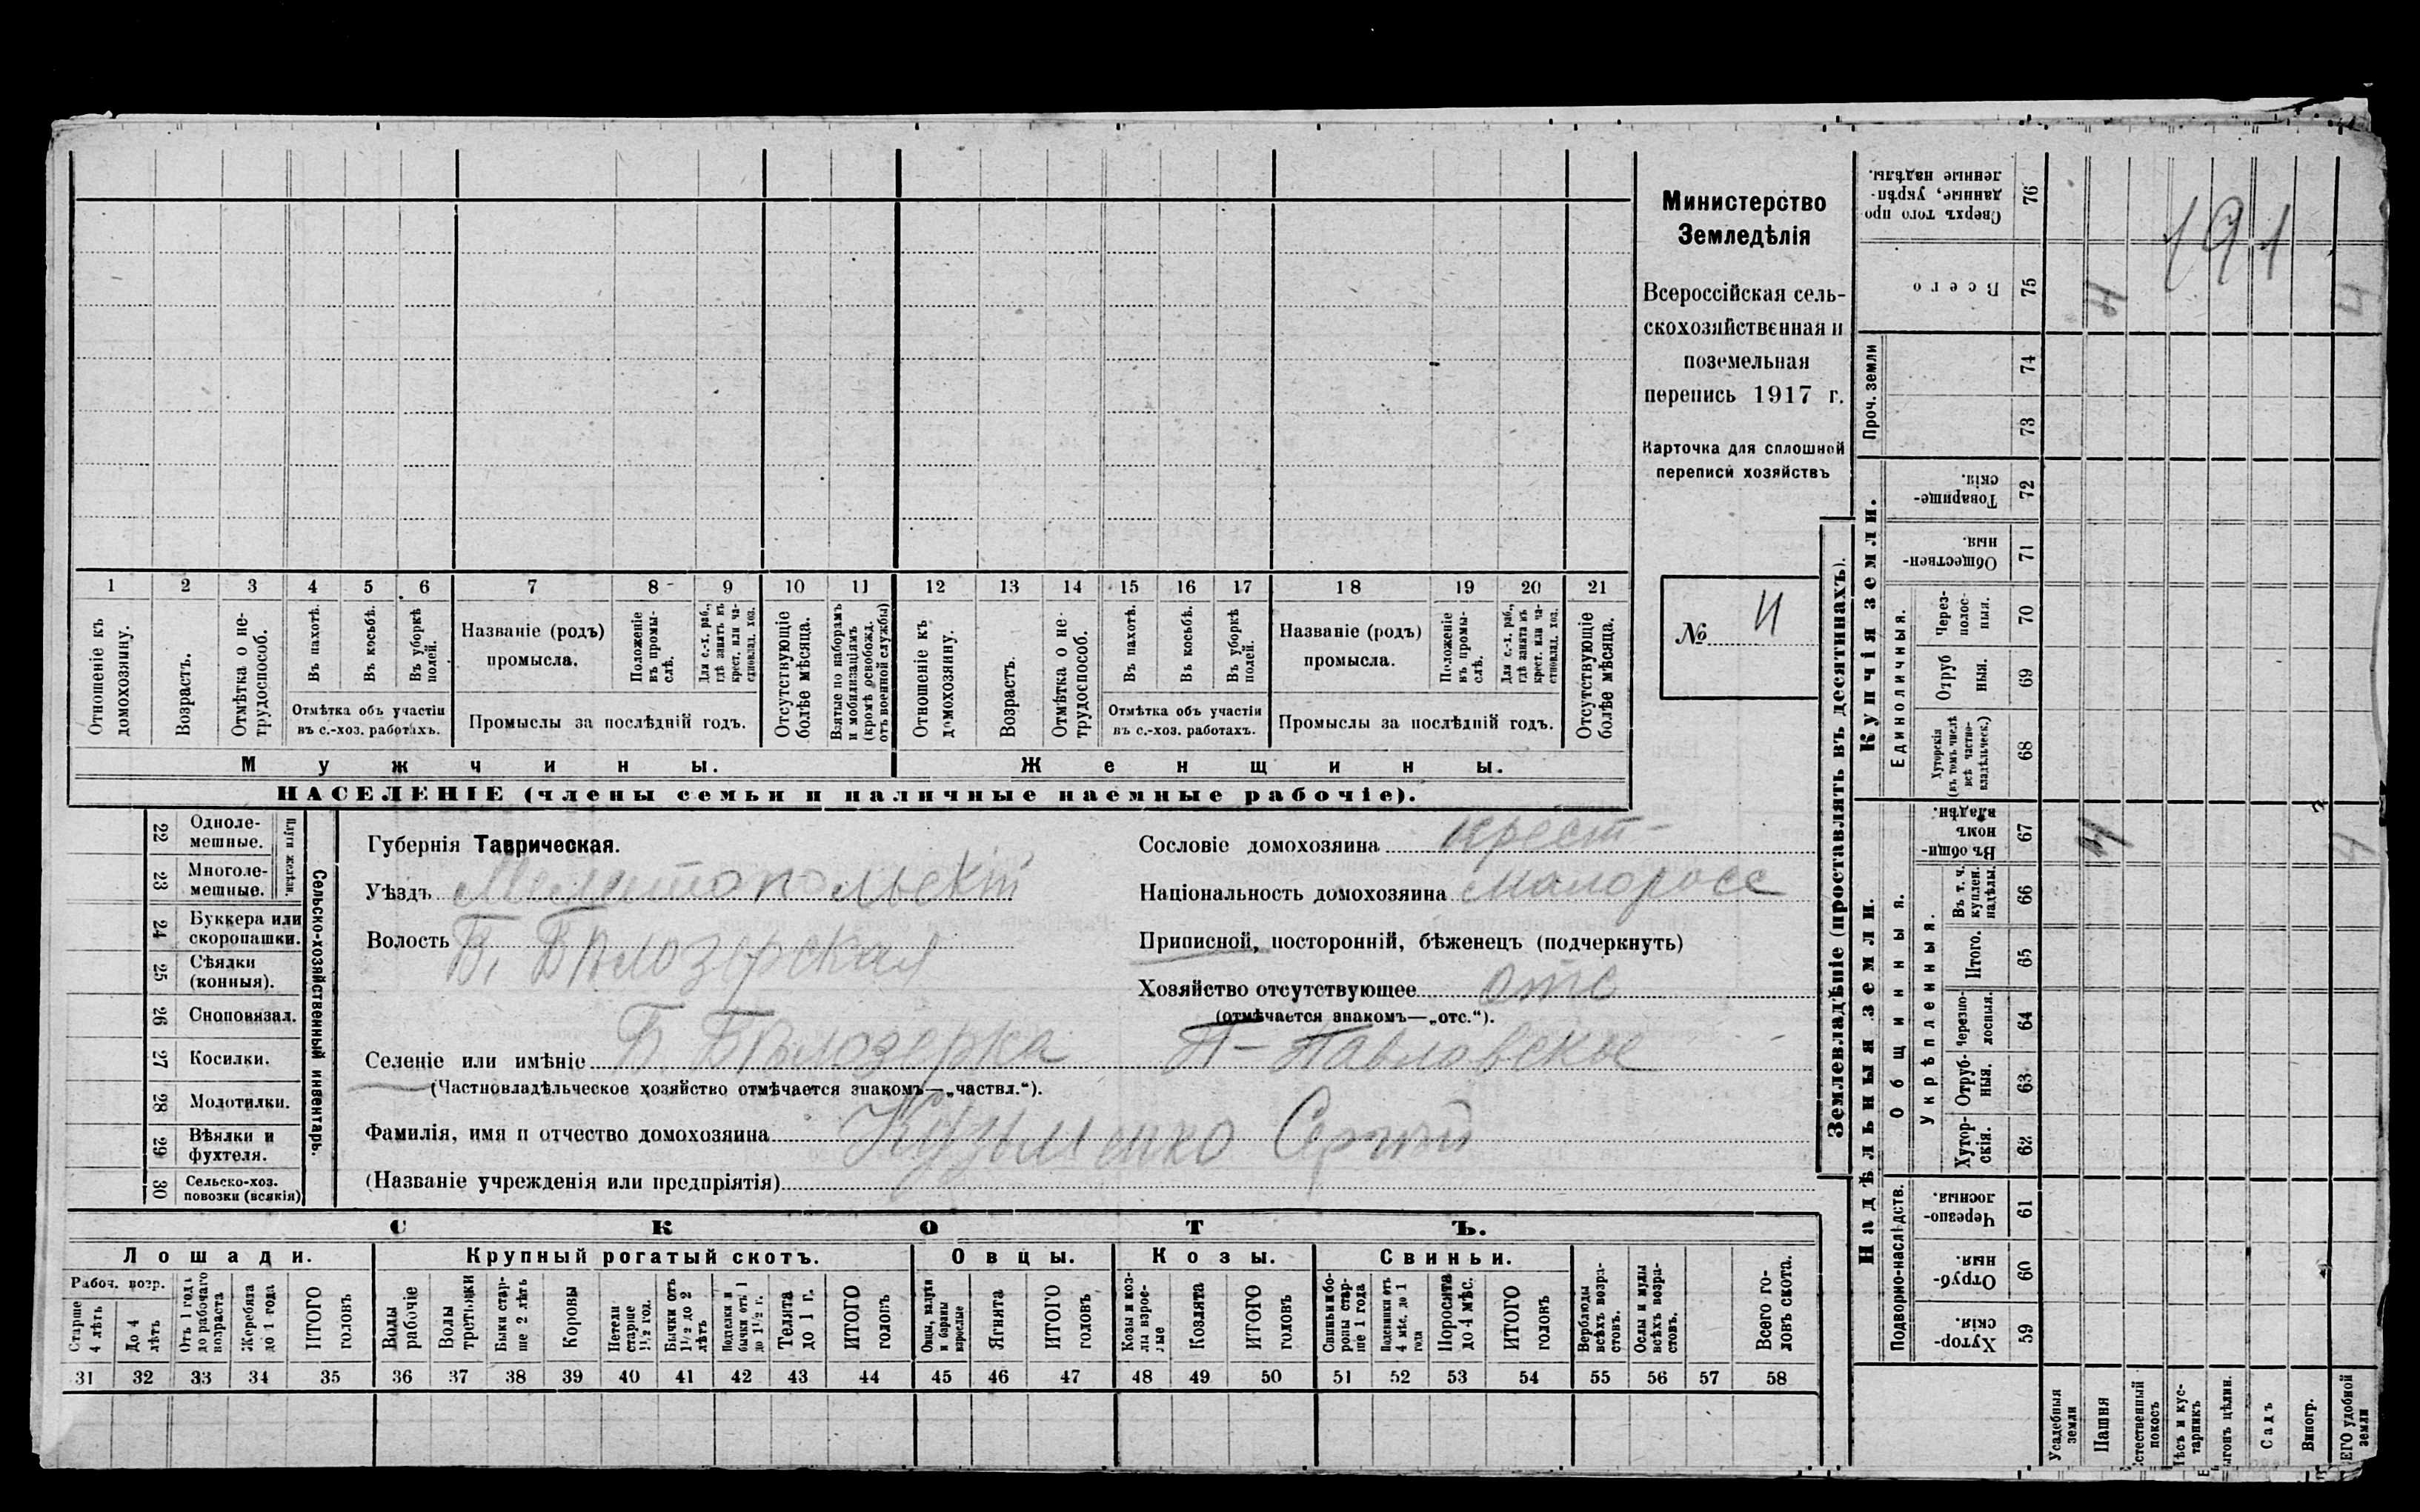 1 2 3 4 5 6 7 8 9 10 11 12 13 14 15 16 17 18 19 20 21
Отношеніе къ домохозяину.
Возрастъ.
Отмѣтка о не-
трудоспособ.
Въ пахотѣ.
Въ косьбѣ.
Въ уборкѣ
полей.
Отмѣтка объ участіи
въ с.-хоз. работахъ.
Названіе (родъ)
промысла.
Положеніе
въ промы-
слѣ.
Для с.-х. раб.,
гдѣ занятъ въ
крест. или ча-
стновлад. хоз.
Промыслы за послѣдній годъ.
Отсутствующіе
болѣе мѣсяца.
Взятые по наборамъ
и мобилизаціямъ
(кромѣ освобожд.
отъ военной службы)
Отношеніе къ
домохозяину.
Возрастъ.
Отмѣтка о не-
трудоспособ.
Въ пахотѣ.
Въ косьбѣ.
Въ уборкѣ
полей.
Отмѣтка объ участіи
въ с.-хоз. работахъ.
Названіе (родъ)
промысла.
Положеніе
въ промы-
слѣ.
Для с.-х. раб.,
гдѣ занята въ
крест. или ча-
стновлад. хоз.
Промыслы за послѣдній годъ.
Отсутствующіе
болѣе мѣсяца.
Мужчины.
Женщины.
НАСЕЛЕНІЕ (члены семьи и наличные наемные рабочіе).
Министерство
Земледѣлія
Всероссійская сель-
скохозяйственная и
поземельная
перепись 1917 г.
Карточка для сплошной
переписи хозяйствъ
№ 4
22 Одноле-
мешные.
23 Многоле-
мешные.
Плуги желѣзн.
24 Буккера или
скоропашки.
25 Сѣялки
(конныя).
26 Сноповязал.
27 Косилки.
28 Молотилки.
29 Вѣялки и
фухтеля.
30 Сельско-хоз.
повозки (всякія)
Сельско-хозяйственный инвентарь.
Губернія Таврическая.
Уѣздъ Мелитопольскій
Волость Б. Бѣлозерская
Селеніе или имѣніе Б. Бѣлозерка П-Павловское
(Частновладѣльческое хозяйство отмѣчается знакомъ—„частвл.“).
Фамилія, имя и отчество домохозяина Кузьменко Сергѣй
(Названіе учрежденія или предпріятія)
Сословіе домохозяина крест-
Національность домохозяина малоросс
Приписной, посторонній, бѣженецъ (подчеркнуть)
Хозяйство отсутствующее отс
(отмѣчается знакомъ—„отс.“).
СКОТЪ.
Лошади. Крупный рогатый скотъ. Овцы. Козы. Свиньи.
Рабоч. возр.
Старше
4 лѣтъ
До 4
лѣтъ
Отъ 1 года
до рабочаго
возраста
Жеребята
до 1 года
ИТОГО
головъ
Волы
рабочіе
Волы
третьяки
Быки стар-
ше 2 лѣтъ
Коровы
Нетели
старше
1½ год.
Бычки отъ
1½ до 2
лѣтъ
Подтелки и
бычки отъ 1
до 1½ г.
Телята
до 1 г.
ИТОГО
головъ
Овцы, валухи
и бараны
взрослые
Ягнята
ИТОГО
головъ
Козы и коз-
лы взрос-
лые
Козлята
ИТОГО
головъ
Свиньи и бо-
ровы стар-
ше 1 года
Подсвинки отъ
4 мѣс. до 1
года
Поросята
до 4 мѣс.
ИТОГО
головъ
Верблюды
всѣхъ возра-
стовъ.
Ослы и мулы
всѣхъ возра-
стовъ.
Всего го-
ловъ скота.
31 32 33 34 35 36 37 38 39 40 41 42 43 44 45 46 47 48 49 50 51 52 53 54 55 56 57 58
Землевладѣніе (проставлять въ десятинахъ).
Надѣльныя земли.
Купчія земли.
Проч. земли
Подворно-наслѣдств.
Общинныя.
Укрѣпленныя.
Единоличныя.
Сверхъ того про
данные, укрѣп-
ленные надѣлы.
76
Всего
75
74
73
Товарище-
скія.
72
Обществен-
ныя.
71
Через-
полос-
ныя.
70
Отруб
ныя.
69
Хуторскія
(въ томъ числѣ
всѣ частно-
владѣльческ.)
68
Въ общи-
номъ
владѣн.
67
Въ т. ч.
куплен.
надѣлы.
66
Итого.
65
Черезпо-
лосныя.
64
Отруб-
ныя.
63
Хутор-
скія.
62
Черезпо-
лосныя.
61
Отруб-
ныя.
60
Хутор-
скія.
59
191
4 4
4 4
Усадебныя
земли
Пашня
стественный
покосъ
Лѣсъ и кус-
тарникъ
ыгонъ цѣлин.
Садъ
Виногр.
ЕГО удобной
земли